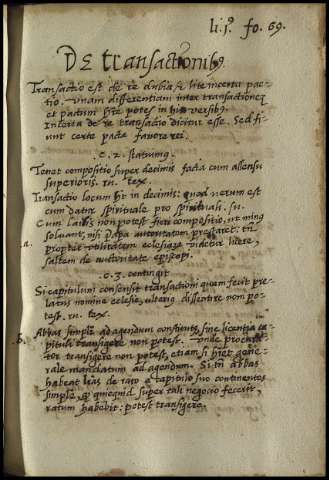 li. jº. fo. 69.
De transactionibꝫ
Transactio est de re dubia & lite incerta pac-
tio. unam differentiam inter transactionẽ
et pactum
Incerta de re transactio dicitur esse. Sed fi-
unt certe pacta favore rei.
.c. 2. statuimꝰ.
Tenet compositio super decimis facta cum assensu
superioris. ru. tex.
Transactio locum hẽt in decimis: quod verum est
cum datur spirituale pro spirituali. ju.
Cum laicis non potest fieri compositio, ut minꝰ
a. soluant, nisi Papa autoritatem prestaret. tñ
propter utilitatem ecclesiae videtur licere,
saltem de autoritate episcopi.
.c. 3. contingit
Si capitulum consensit transactioni quam fecit pre-
latus nomine eclesie, ulterius dissentire non po-
test. ru. tex.
b. Abbas simplr̃ ad agendum constitutꝰ, sine licentia ca-
pituli transigere non potest. unde procura-
tor transigere non potest, etiam si hẽt gene-
rale mandatum ad agendum. Si tñ abbas
habeat lr̃as de rato a capitulo suo continentes
simplr̃, quicquid super tali negocio fecerit,
ratum habebit: potest transigere.